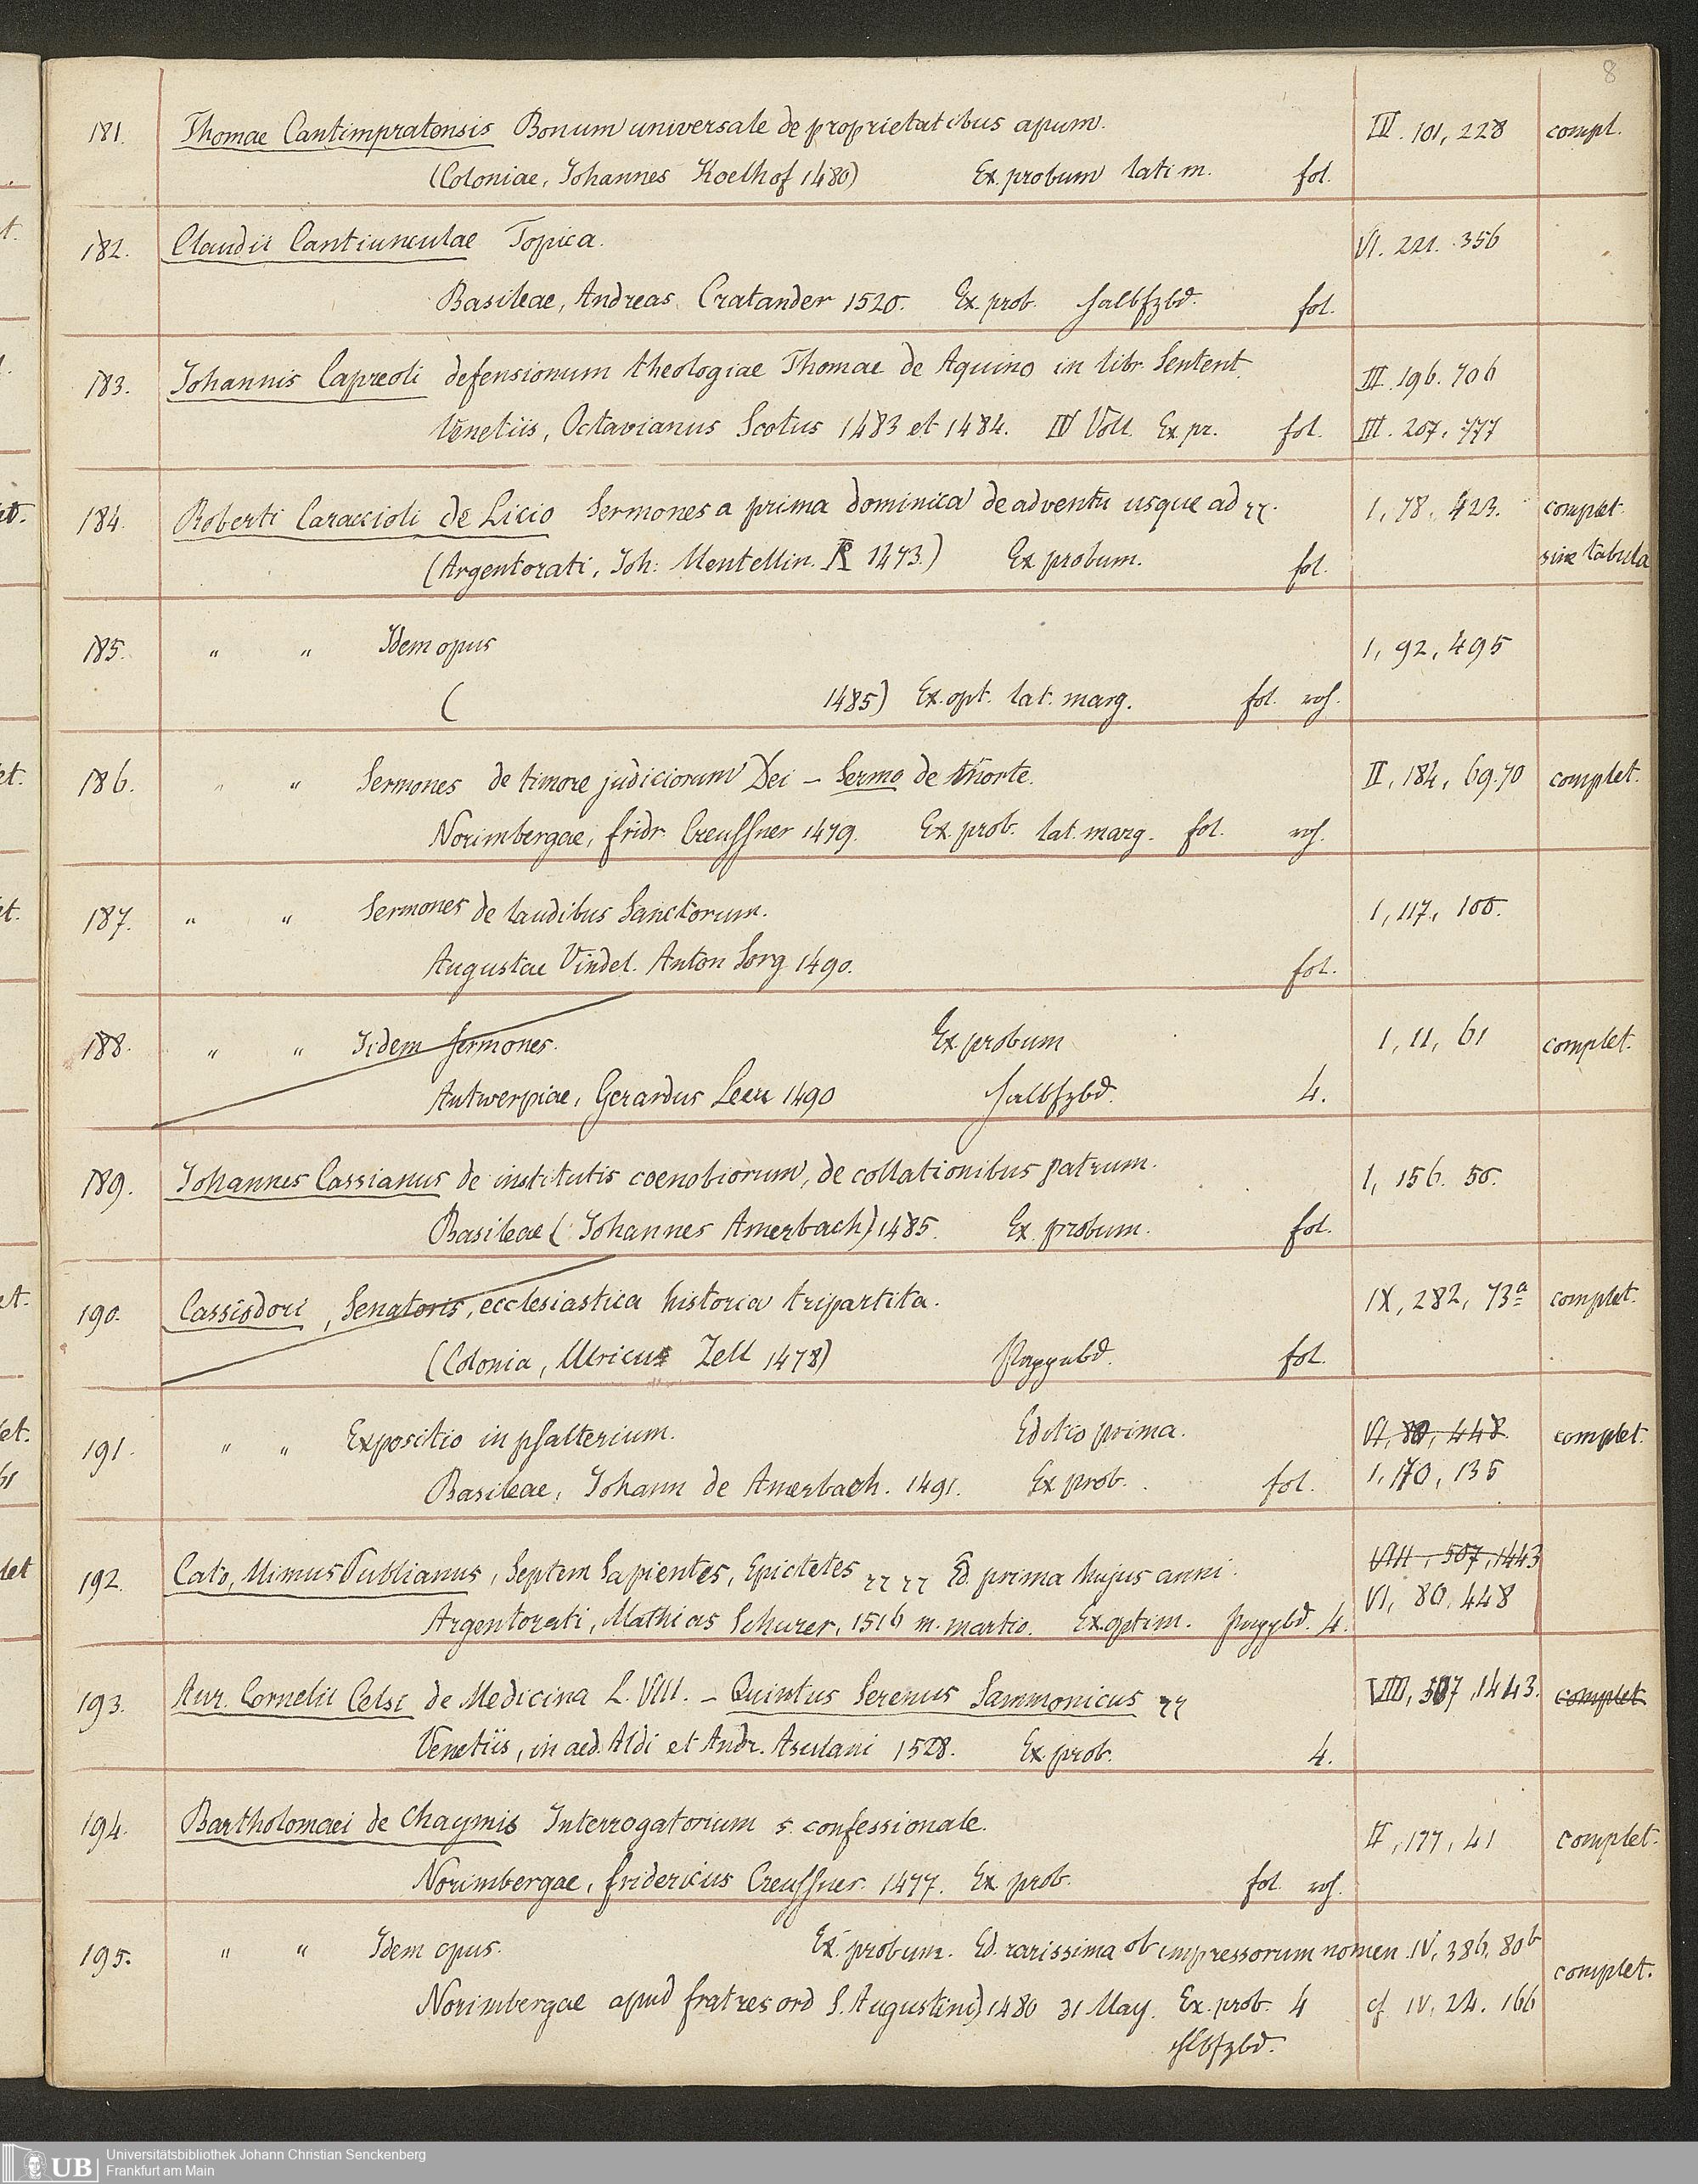 8
181. Thomae Cantimpratensis Bonum universale de proprietatibus apum. IV. 101, 228 compl.
(Coloniae, Johannes Koelhof 1480) Ex. probum lati m. fol.
182. Claudii Cantiunculae Topica. VI. 221. 356
Basileae, Andreas Cratander 1520. Ex. prob. Halbfzbd. fol.
183. Johannis Capreoli defensionum theologiae Thomae de Aquino in libr. Sentent. III. 196. 706
Venetiis, Octavianus Scotus 1483 et 1484. IV Voll. Ex. pr. fol. III. 207. 777
184. Roberti Caraccioli de Licio Sermones a prima dominica de adventu usque ad I, 78, 423. complet.
(Argentorati, Joh: Mentellin. R 1473.) Ex probum. fol. sine tabula
185. " " Idem opus I, 92, 495
( 1485) Ex. opt. lat. marg. fol. roh.
186. " " Sermones de timore judiciorum Dei – Sermo de morte. II, 184, 69.70 complet.
Norimbergae, Fridr. Creussner 1479. Ex. prob. lat. marg. fol. roh.
187. " " Sermones de laudibus Sanctorum. I, 117, 100.
Augustae Vindel. Anton Sorg 1490. fol.
188. " " Iidem sermones. Ex probum I, 11, 61 complet.
Antwerpiae, Gerardus Leeu 1490 Halbfzbd. 4.
189. Johannes Cassianus de institutis coenobiorum, de collationibus patrum. I, 156. 50.
Basileae (Johannes Amerbach) 1485. Ex. probum. fol.
190. Cassiodori, Senatoris, ecclesiastica historia tripartita. IX, 282, 73a complet.
(Colonia, Ulricus Zell 1478) Pappbd. fol.
191. " " Expositio in psalterium. Editio prima. VI, 80, 448. complet.
Basileae, Johann de Amerbach. 1491. Ex prob. fol. I, 170, 135
192. Cato, Mimus Publianus, Septem Sapientes, Epictetes Ed. prima hujus anni. VIII, 507, 1443
Argentorati, Mathias Schurer, 1516 m. martio. Ex. optim. Pappbd. 4. VI, 80, 448
193. Aur. Cornelii Celsi de Medicina L. VIII. – Quintus Serenus Sammonicus VIII, 507, 1443. complet
Venetiis, in aed. Aldi et Andr. Asulani 1528. Ex. prob. 4.
194. Bartholomaei de Chaymis Interrogatorium s. confessionale. II, 177, 41 complet.
Norimbergae, Fridericus Creussner. 1477. Ex prob. fol. roh.
195. " " Idem opus. Ex. probum. Ed. rarissima ob impressorum nomen. IV, 386, 80b complet.
Norimbergae apud fratres ord S. Augustini) 1480 31 May. Ex. prob. 4 cf IV, 24. 166
Hlbfzbd.
UB Universitätsbibliothek Johann Christian Senckenberg
Frankfurt am Main